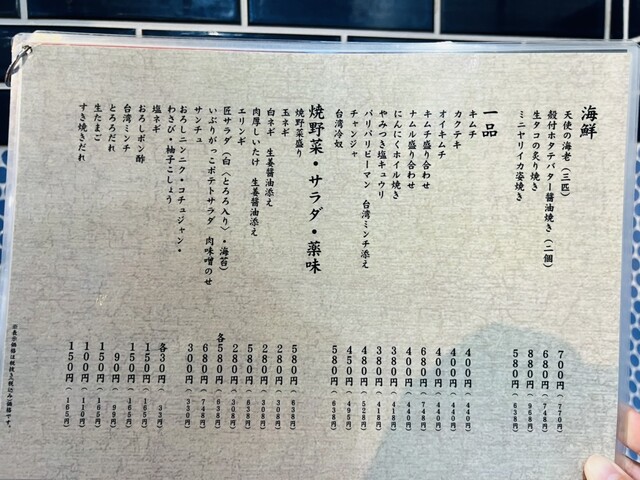 海鮮
天使の海老(三匹) 700円(770円)
殻付ホタテバター醤油焼き(二個) 680円(748円)
生タコの炙り焼き 880円(968円)
ミニヤリイカ姿焼き 580円(638円)
一品
キムチ 400円(440円)
カクテキ 400円(440円)
オイキムチ 400円(440円)
キムチ盛り合わせ 680円(748円)
ナムル盛り合わせ 400円(440円)
にんにくホイル焼き 380円(418円)
やみつき塩キュウリ 380円(418円)
バリバリピーマン 台湾ミンチ添え 480円(528円)
チャンジャ 450円(495円)
台湾冷奴 580円(638円)
焼野菜・サラダ・薬味
焼野菜盛り 580円(638円)
玉ネギ 280円(308円)
白ネギ 生姜醤油添え 280円(308円)
肉厚しいたけ 生姜醤油添え 580円(638円)
エリンギ 280円(308円)
匠サラダ〈白(とろろ入り)・海苔〉 各580円(638円)
いぶりがっこポテトサラダ 肉味噌のせ 680円(748円)
サンチュ 300円(330円)
おろしニンニク・コチュジャン・
わさび・柚子こしょう 各30円(33円)
塩ネギ 150円(165円)
おろしポン酢 150円(165円)
台湾ミンチ 90円(99円)
とろろだれ 150円(165円)
生たまご 100円(110円)
すき焼きだれ 150円(165円)
※表示価格は税抜き(税込み)価格です。